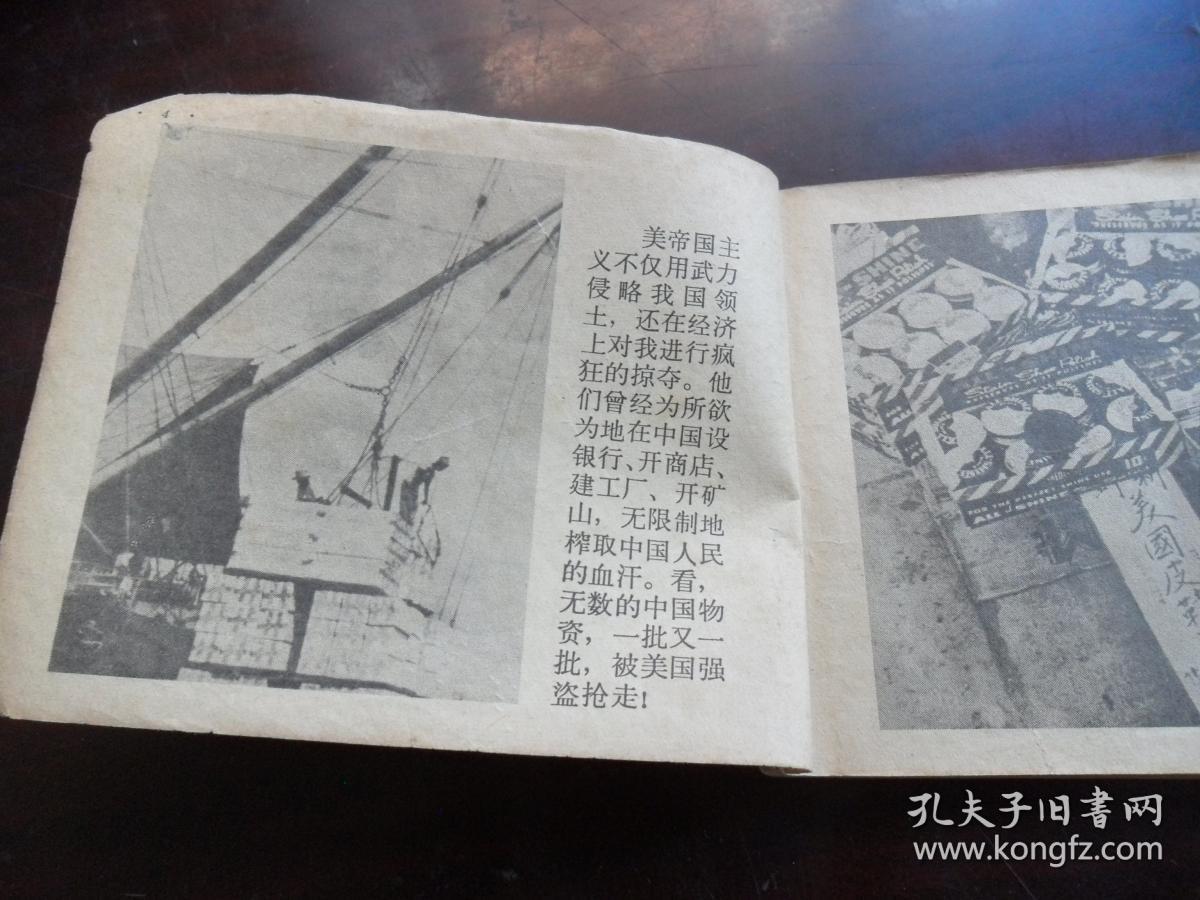 美帝国主
义不仅用武力
侵略我国领
土，还在经济
上对我进行疯
狂的掠夺。他
们曾经为所欲
为地在中国设
银行、开商店、
建工厂、开矿
山，无限制地
榨取中国人民
的血汗。看，
无数的中国物
资，一批又一
批，被美国强
盗抢走!
SHINE
FOR THE
ALL SHINE
10
美國皮革
孔夫子旧書网
www.kongfz.com